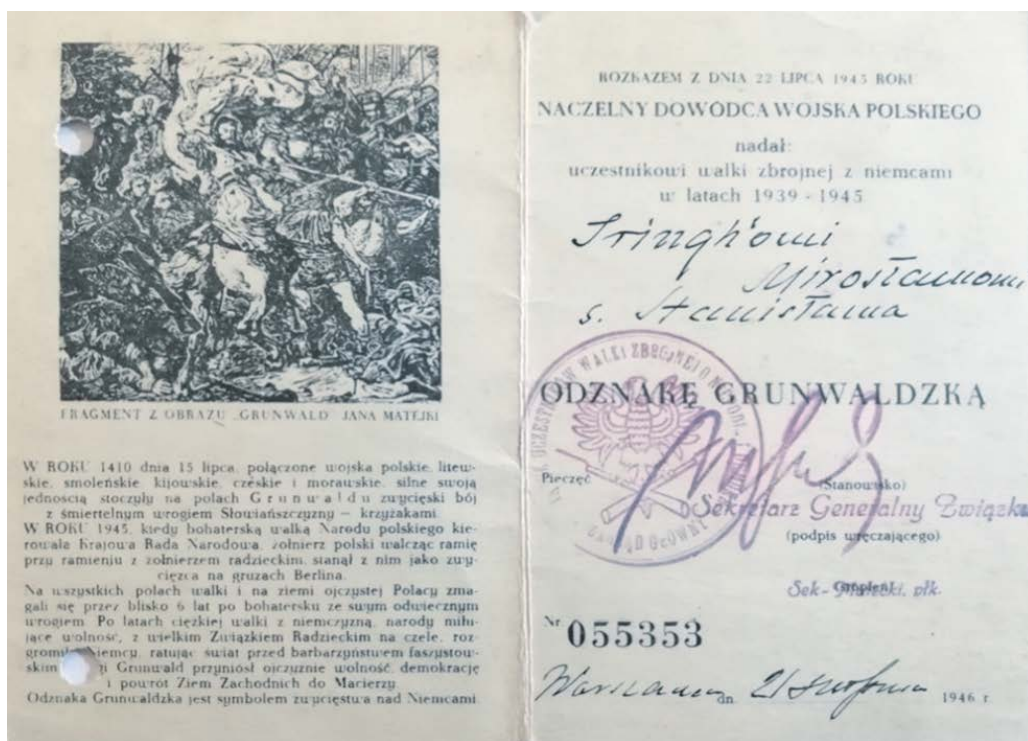 FRAGMENT Z OBRAZU „GRUNWALD" JANA MATEJKI
W ROKU 1410 dnia 15 lipca, połączone wojska polskie, litew-
skie, smoleńskie, kijowskie, czeskie i morawskie, silne swoją
jednością stoczyły na polach Grunwaldu zwycięski bój
z śmiertelnym wrogiem Słowiańszczyzny — krzyżakami.
W ROKU 1945, kiedy bohaterską walką Narodu polskiego kie-
rowała Krajowa Rada Narodowa, żołnierz polski walcząc ramię
przy ramieniu z żołnierzem radzieckim, stanął z nim jako zwy-
cięzca na gruzach Berlina.
Na wszystkich polach walki i na ziemi ojczystej Polacy zma-
gali się przez blisko 6 lat po bohatersku ze swym odwiecznym
wrogiem. Po latach ciężkiej walki z niemczyzną, narody miłu-
jące wolność, z wielkim Związkiem Radzieckim na czele, roz-
gromiły Niemcy, ratując świat przed barbarzyństwem faszystow-
skim. Grunwald przyniósł ojczyźnie wolność, demokrację
i powrót Ziem Zachodnich do Macierzy.
Odznaka Grunwaldzka jest symbolem zwycięstwa nad Niemcami.
ROZKAZEM Z DNIA 22 LIPCA 1945 ROKU
NACZELNY DOWÓDCA WOJSKA POLSKIEGO
nadał:
uczestnikowi walki zbrojnej z niemcami
w latach 1939 - 1945
Mirosławowi
s. Stanisława
UCZESTNIKÓW WALKI ZBROJNEJ O
ZARZĄD GŁÓWNY
ODZNAKĘ GRUNWALDZKĄ
Pieczęć
(Stanowisko)
Sekretarz Generalny Związku
(podpis wręczającego)
płk.
Nr 055353
Warszawa dn. 21 sierpnia 1946 r.